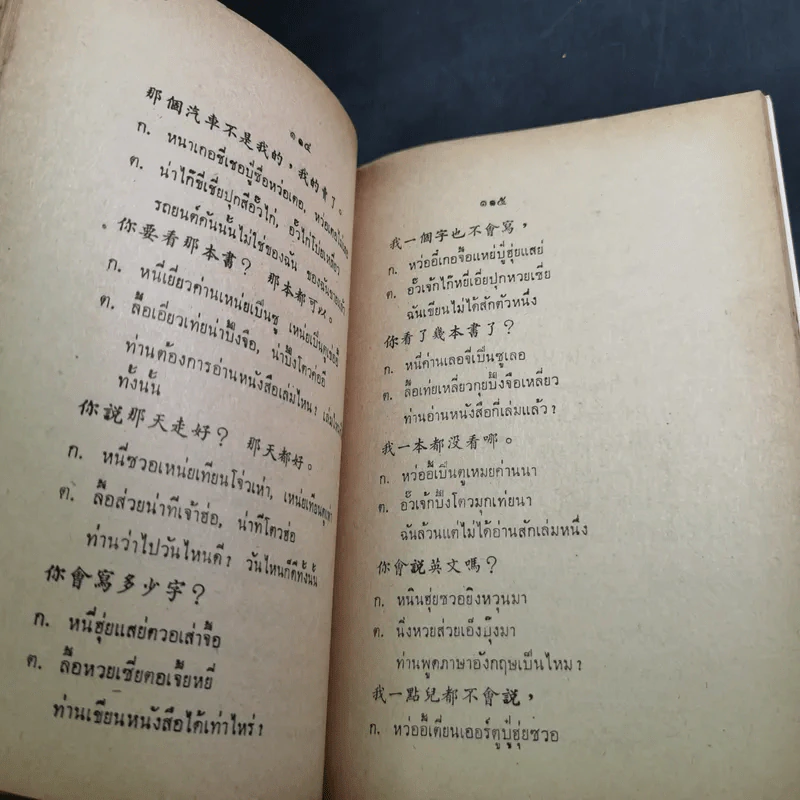 ๑๑๔
那個汽車不是我的，我的賣了。
ก. หนาเกอชี่เชอปู่ซื่อหว่อเตอ, หว่อเตอไม่เลอ
ต. น่าไก๊ขี่เชี่ยปุกสีอั๊วไก่, อั๊วไก่ไปอเหลี่ยว
รถยนต์คันนั้นไม่ใช่ของฉัน ของฉันขายแล้ว
你要看那本書？ 那本都可以。
ก. หนี่เยี่ยวค่านเหน่ยเป็นซู เหน่ยเป็นตูเข่ออี้
ต. ลื้อเอี่ยวเท่ยน่าปึ้งจือ, น่าปึ้งโตวค่ออี
ท่านต้องการอ่านหนังสือเล่มไหน? เล่มไหน
ทั้งนั้น
你說那天走好？ 那天都好。
ก. หนี่ซวอเหน่ยเทียนโจ่วเห่า, เหน่ยเทียนตูเห่า
ต. ลื้อส่วยน่าทีเจ้าฮ่อ, น่าทีโตวฮ่อ
ท่านว่าไปวันไหนดี? วันไหนก็ดีทั้งนั้น
你會寫多少字？
ก. หนี่ฮุ่ยแสย่ควอเส่าจื้อ
ต. ลื้อหวยเซี่ยตอเจี้ยหยี่
ท่านเขียนหนังสือได้เท่าไหร่?
๑๑๕
我一個字也不會寫，
ก. หว่ออี่เกอจื้อแหย่ปู่ฮุ่ยแสย่
ต. อั๊วเจ้กไก๊หยี่เอี่ยปุกหวยเซี่ย
ฉันเขียนไม่ได้สักตัวหนึ่ง
你看了幾本書了？
ก. หนี่ค่านเลอจี่เป็นซูเลอ
ต. ลื้อเท่ยเหลี่ยวกุยปึ้งจือเหลี่ยว
ท่านอ่านหนังสือกี่เล่มแล้ว?
我一本都没看哪。
ก. หว่ออี้เป็นตูเหมยค่านนา
ต. อั๊วเจ้กปึ้งโตวมุกเท่ยนา
ฉันล้วนแต่ไม่ได้อ่านสักเล่มหนึ่ง
你會說英文嗎？
ก. หนินฮุ่ยซวอยิงหวุนมา
ต. นึ่งหวยส่วยเอ็งบุ๊งมา
ท่านพูดภาษาอังกฤษเป็นไหม?
我一點兒都不會說，
ก. หว่ออี้เตี่ยนเออร์ตูปู่ฮุ่ยซวอ